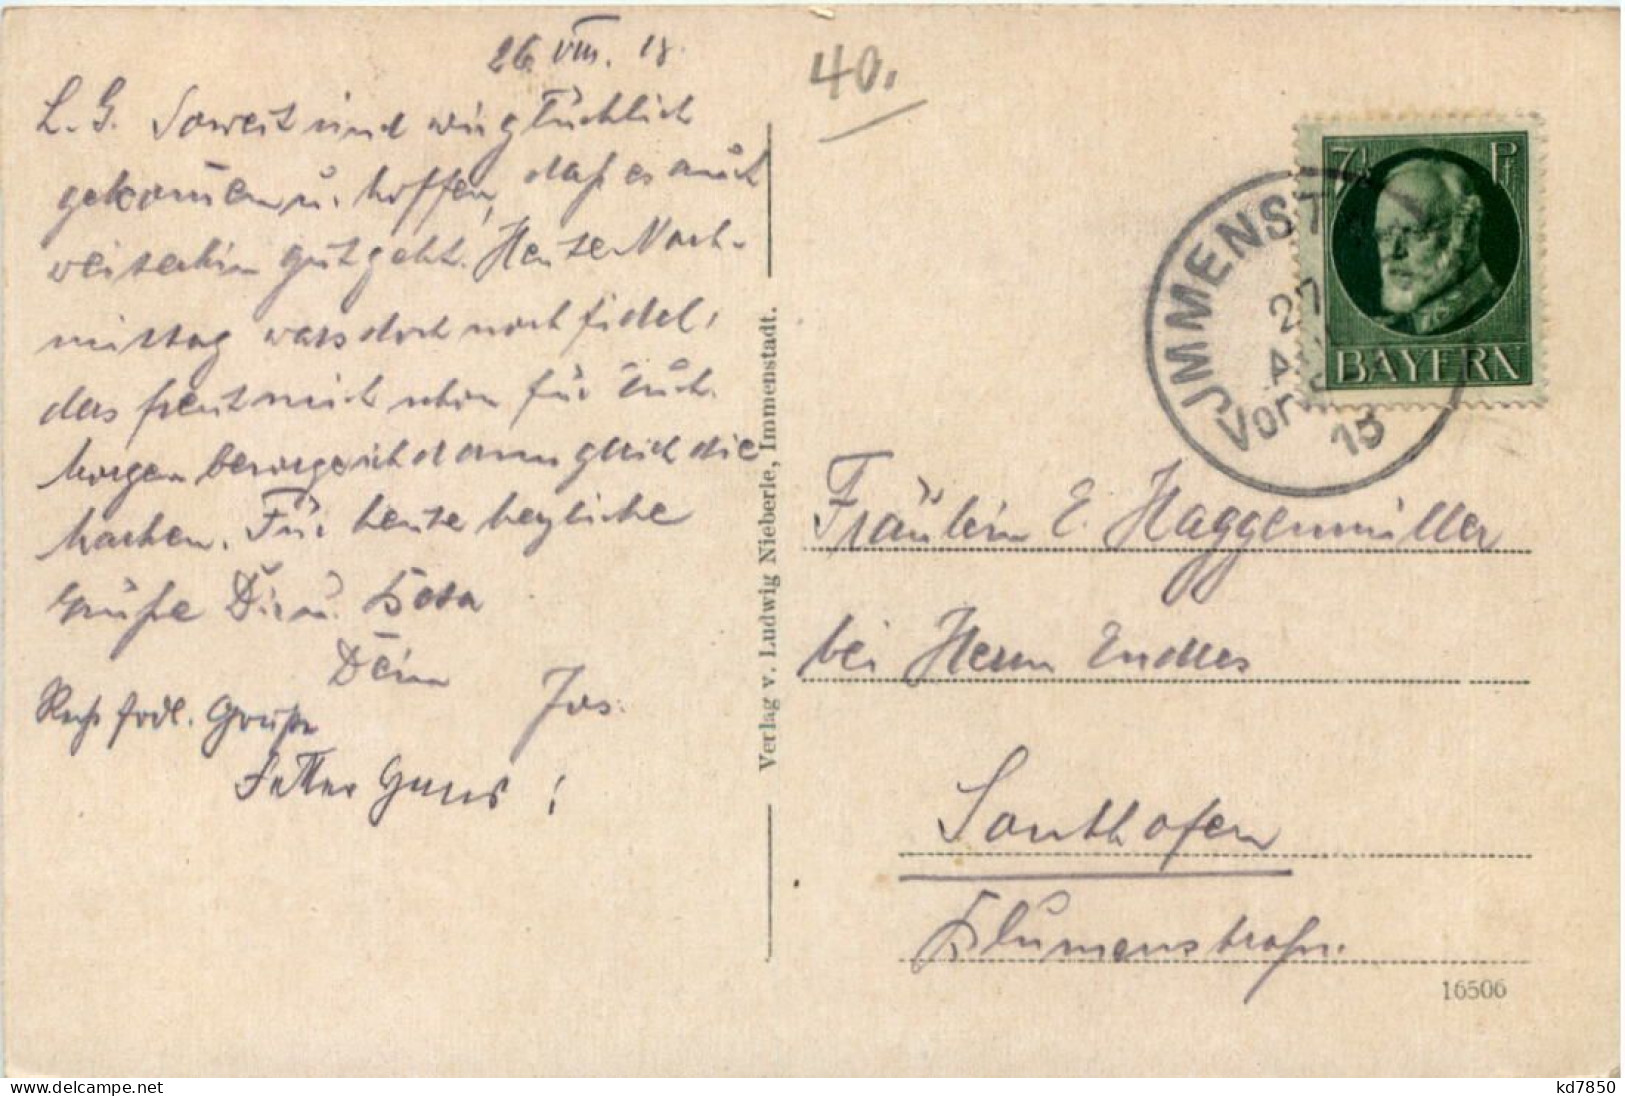 26. VIII. 18.
40.
L. G. Soweit sind wir glücklich
gekommen u. hoffen, daß es auch
weiterhin gut geht. Heute Nach-
mittag wars doch noch fidel,
das freut mich schon für Euch.
Morgen besorge ich dann gleich die
Sachen. Für heute herzliche
Grüße Dir u. Rosa
Dein
Jos.
Recht frdl. Grüße
Vetter Hans!
Verlag v. Ludwig Nieberle, Immenstadt.
7½ Pf
BAYERN
JMMENST
27
Vor
15
Fräulein E. Haggenmüller
bei Herrn Endres
Sonthofen
Blumenstraße.
16506
www.delcampe.net
kd7850